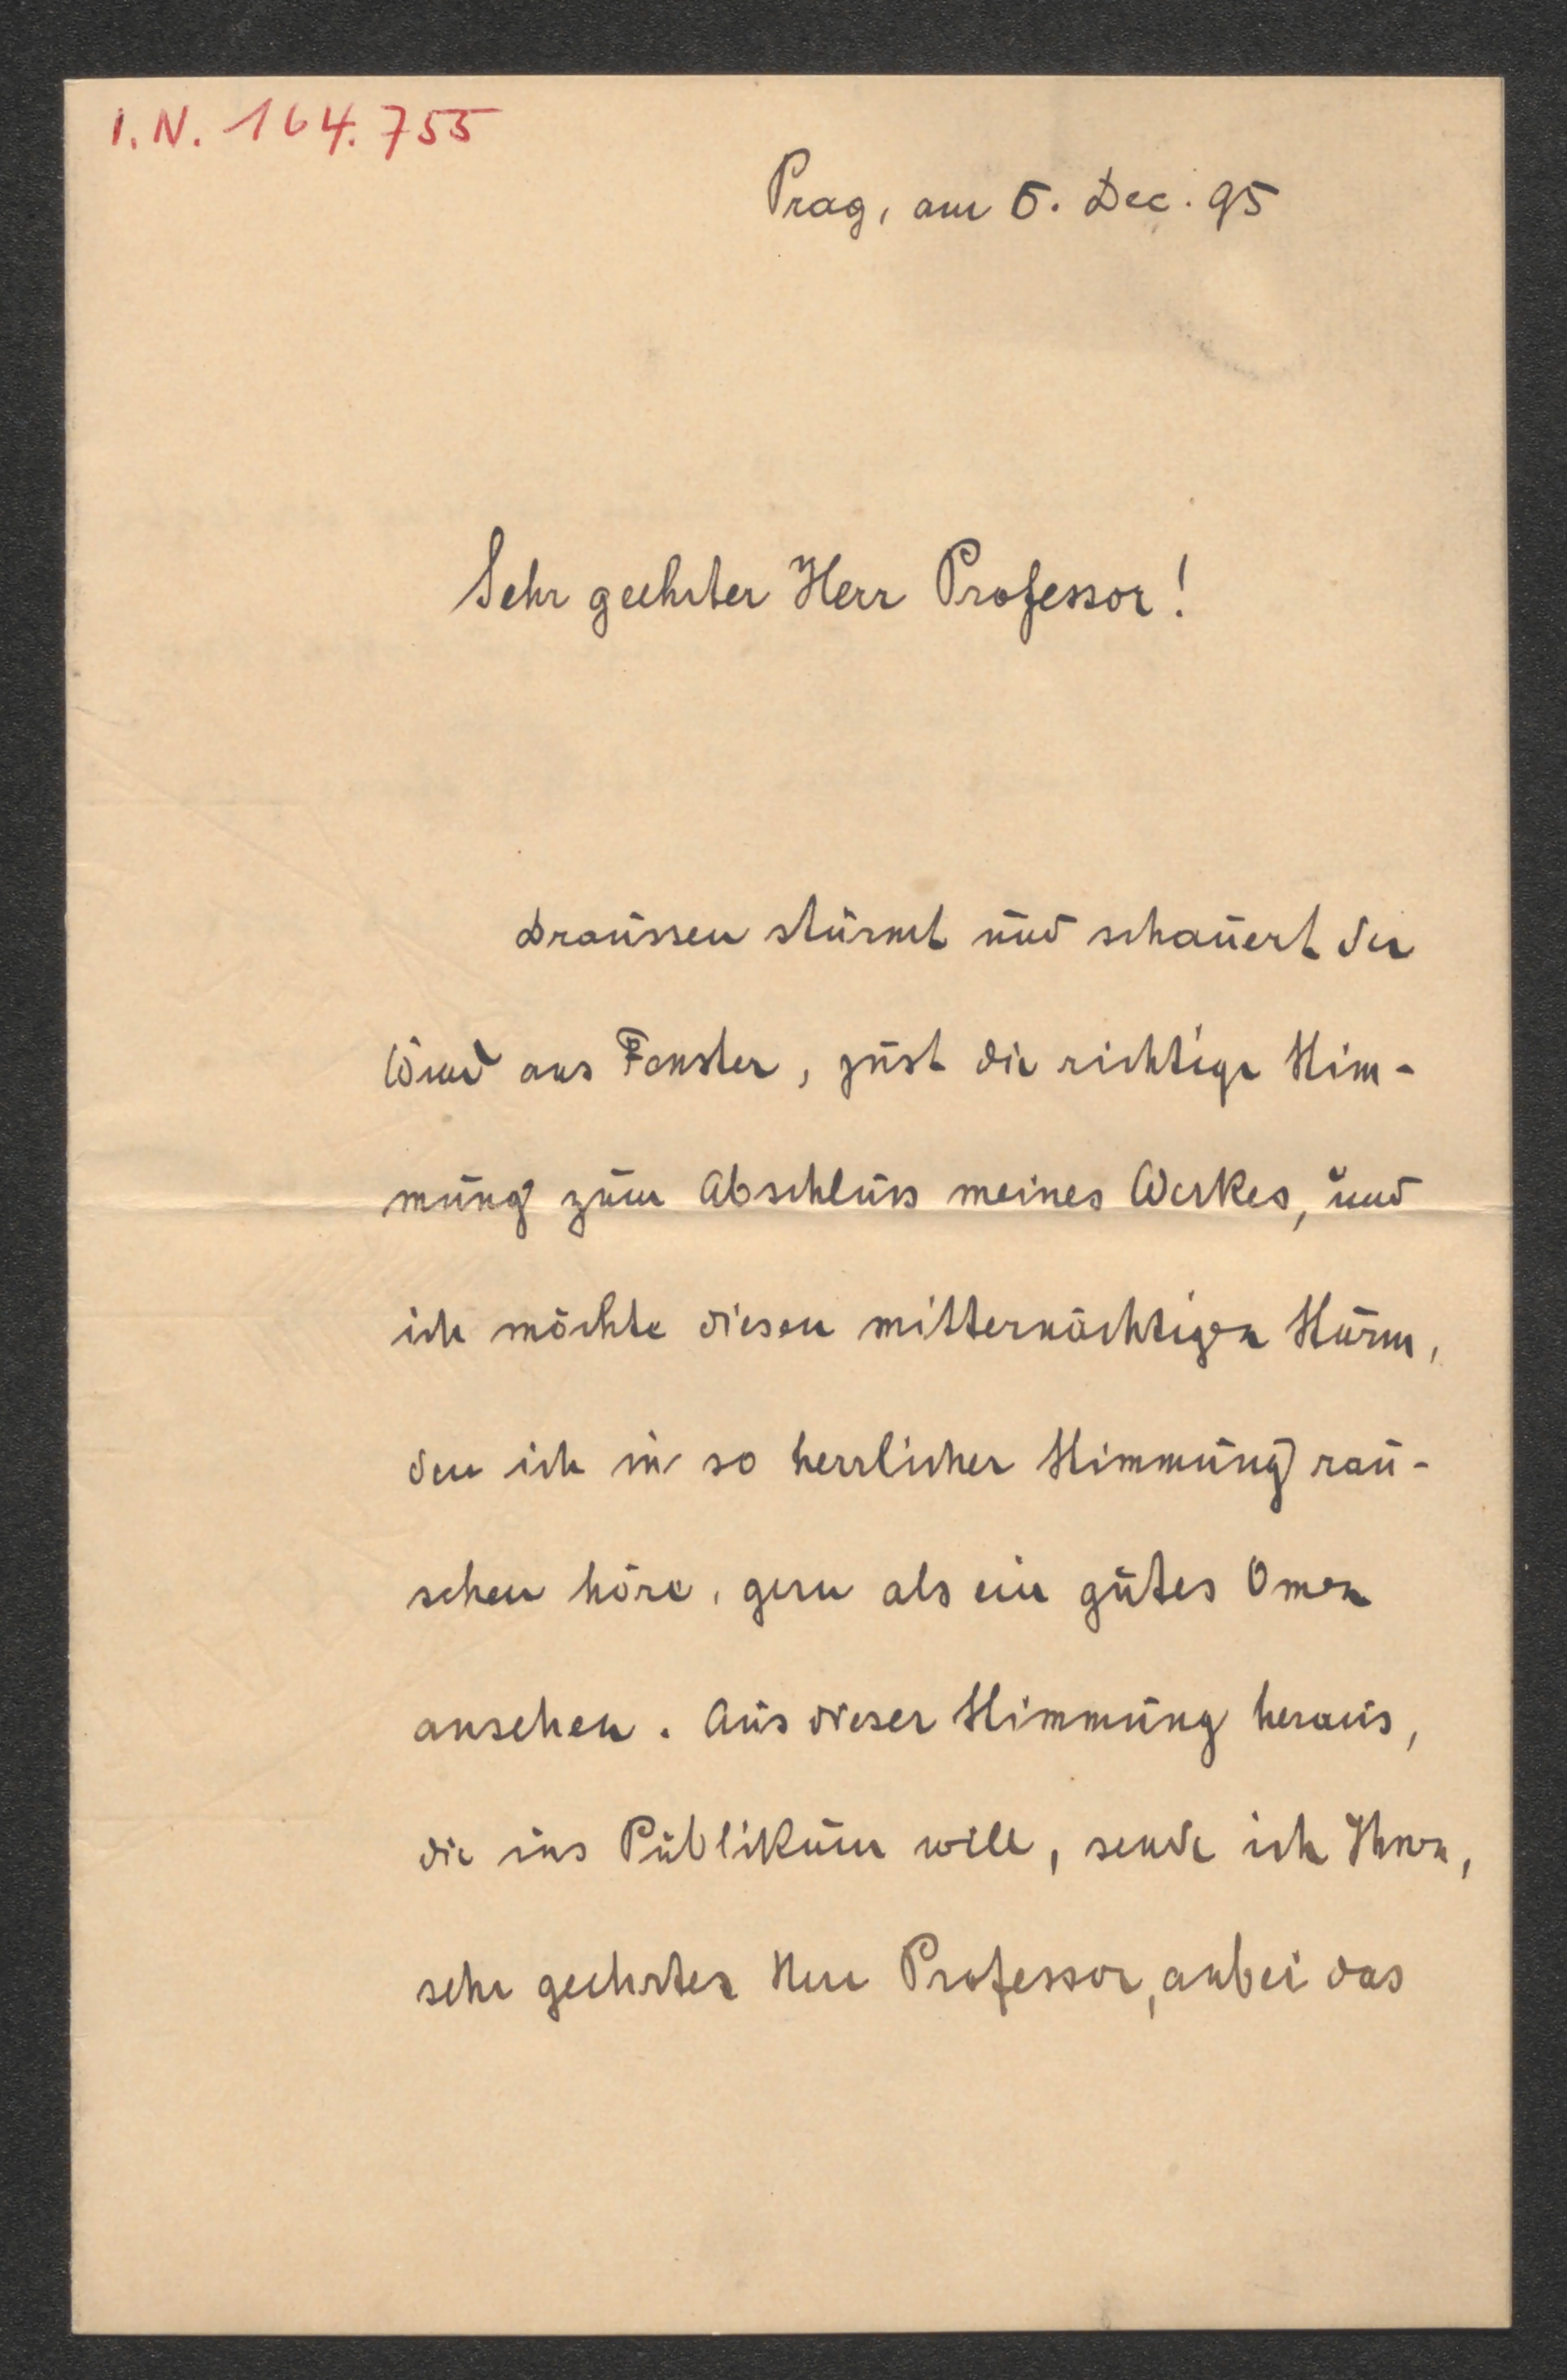 I.N. 164.755
Prag, am 5. Dec. 95
Sehr geehrter Herr Professor!
Draussen stürmt und schauert der
Wind ans Fenster, just die richtige Stim-
mung zum Abschluss meines Werkes, und
ich möchte diesen mitternächtigen Sturm,
den ich in so herrlicher Stimmung rau-
schen höre, gern als ein gutes Omen
ansehen. Aus dieser Stimmung heraus,
die ins Publikum will, sende ich Ihnen,
sehr geehrter Herr Professor, anbei das